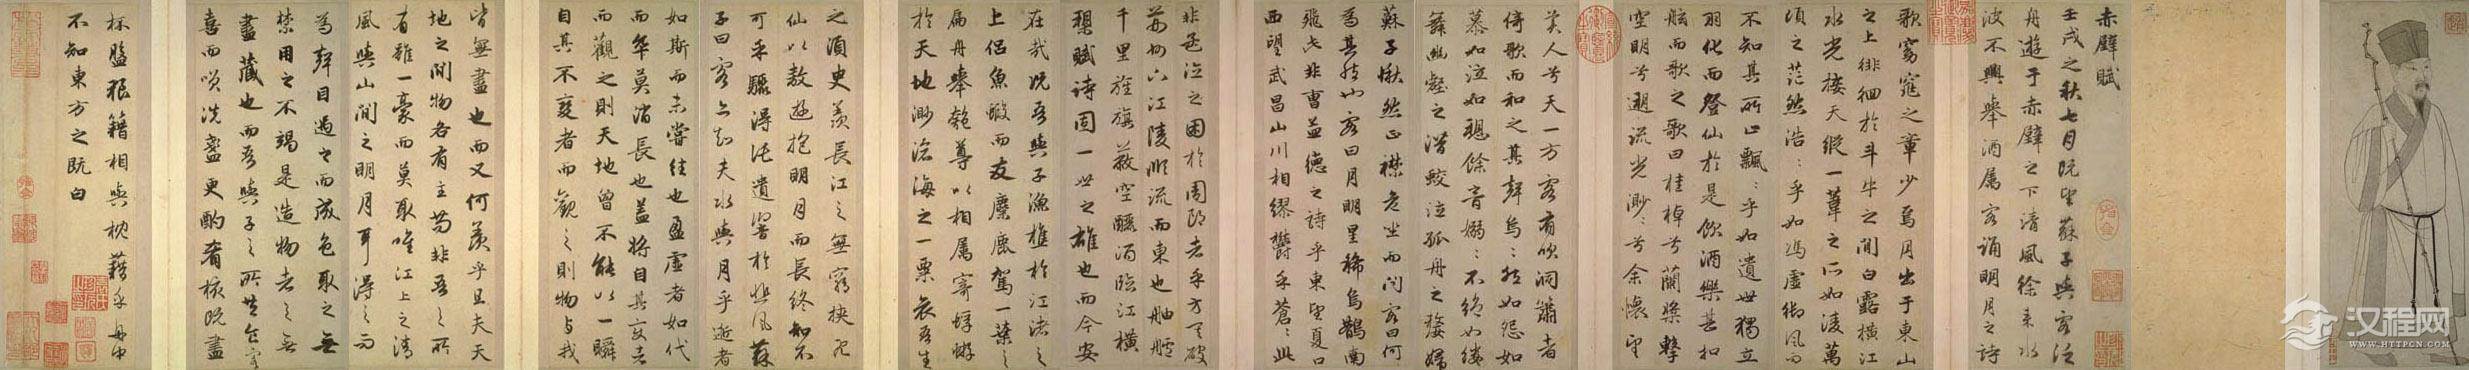 赤壁賦
壬戌之秋七月既望蘇子與客泛
舟遊于赤壁之下清風徐來水
波不興舉酒属客誦明月之詩
歌窈窕之章少焉月出于東山
之上徘徊於斗牛之間白露橫江
水光接天縱一葦之所如凌萬
頃之茫然浩〻乎如馮虛御風而
不知其所止飄〻乎如遺世獨立
羽化而登仙於是飲酒樂甚扣
舷而歌之歌曰桂棹兮蘭槳擊
空明兮遡流光渺〻兮余懷望
美人兮天一方客有吹洞簫者
倚歌而和之其聲烏〻然如怨如
慕如泣如訴餘音嫋〻不絕如縷
舞幽壑之潛蛟泣孤舟之嫠婦
蘇子愀然正襟危坐而問客曰何
為其然也客曰月明星稀烏鵲南
飛此非曹孟德之詩乎東望夏口
西望武昌山川相繆鬱乎蒼〻此
非孟德之困於周郎者乎方其破
荊州下江陵順流而東也舳艫
千里旌旗蔽空釃酒臨江橫
槊賦詩固一世之雄也而今安
在哉況吾與子漁樵於江渚之
上侶魚蝦而友麋鹿駕一葉之
扁舟舉匏尊以相属寄蜉蝣
於天地渺滄海之一粟哀吾生
之須臾羨長江之無窮挾飛
仙以遨遊抱明月而長終知不
可乎驟得託遺響於悲風蘇
子曰客亦知夫水與月乎逝者
如斯而未嘗往也盈虛者如代
而卒莫消長也蓋將自其變者
而觀之則天地曾不能以一瞬
自其不變者而觀之則物与我
皆無盡也而又何羨乎且夫天
地之間物各有主苟非吾之所
有雖一毫而莫取唯江上之清
風與山間之明月耳得之而
為聲目遇之而成色取之無
禁用之不竭是造物者之無
盡藏也而吾與子之所共食客
喜而笑洗盞更酌肴核既盡
杯盤狼籍相與枕藉乎舟中
不知東方之既白
汉程网
WWW.HTTPCN.COM